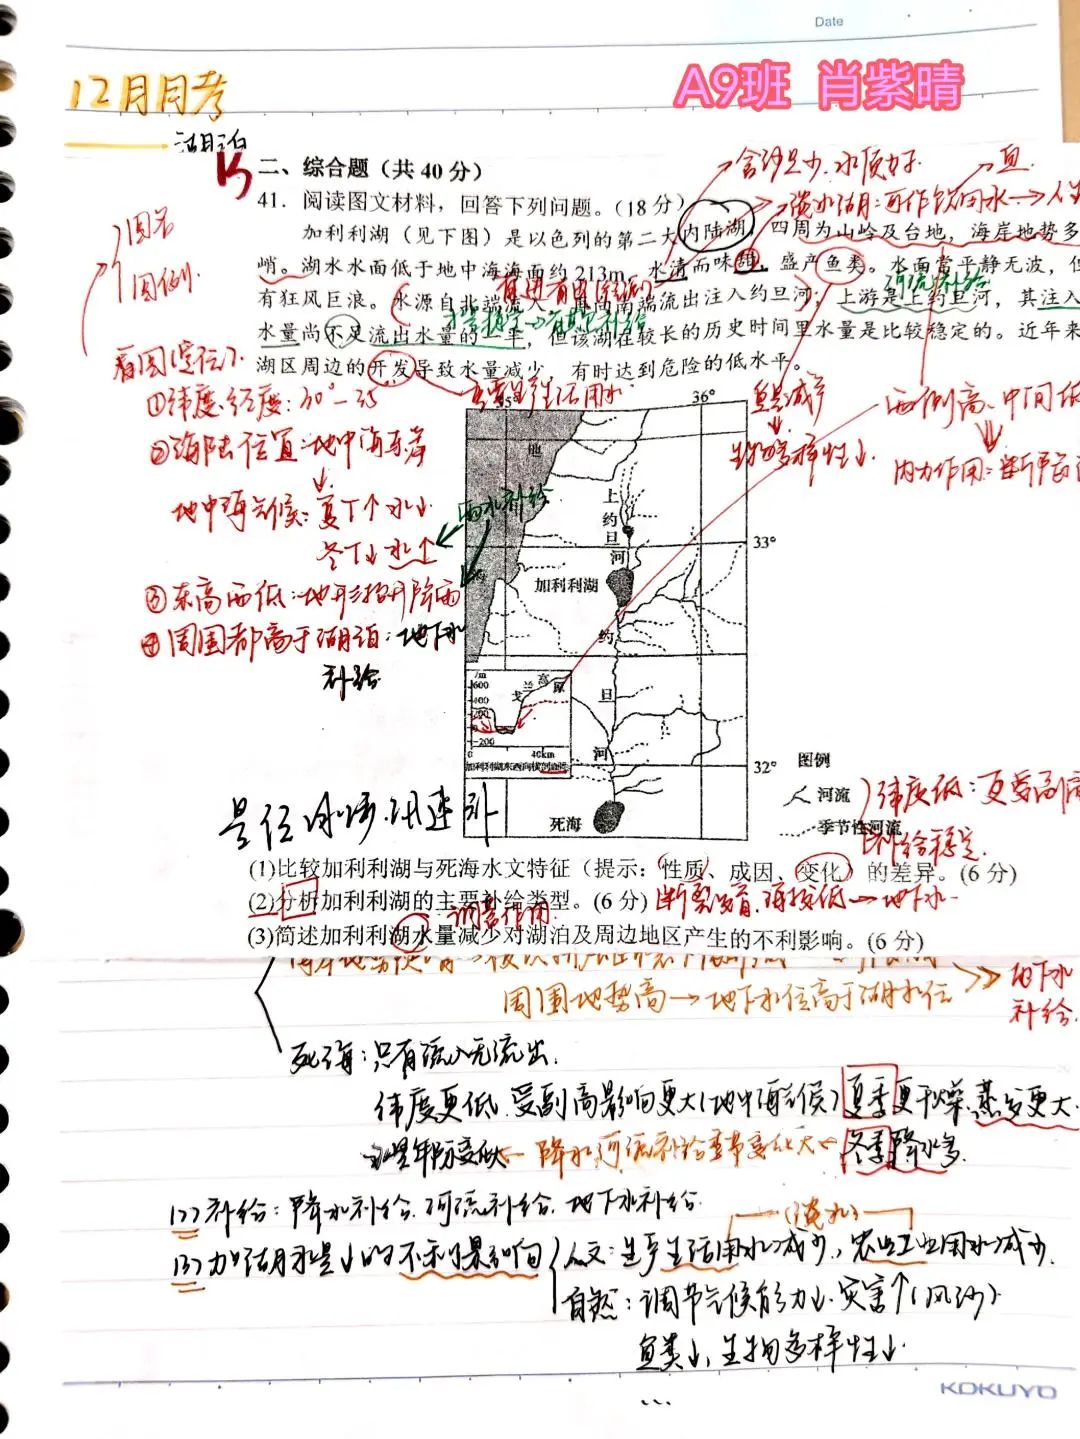 Date
12月月考
A9班 肖紫晴
湖泊
15
二、综合题（共40分）
41．阅读图文材料，回答下列问题。（18分）
加利利湖（见下图）是以色列的第二大内陆湖，四周为山岭及台地，海岸地势多
峭。湖水水面低于地中海海面约213m，水清而味甜，盛产鱼类。水面常平静无波，但
有狂风巨浪。水源自北端流入，南端流出注入约旦河；上游是上约旦河，其注入
水量尚不足流出水量的一半，但该湖在较长的历史时间里水量是比较稳定的。近年来
湖区周边的开发导致水量减少，有时达到危险的低水平。
含沙量少.水质好
鱼
淡水湖:可作饮用水
河流补给
图名
图例
看图(定位)
①纬度.经度:30°-35
②海陆位置:地中海东岸
地中海气候:夏T↑水↓
冬T↓水↑
③东高西低:地形抬升降雨
④周围都高于湖泊:地下水
补给
雨水补给
生产生活用水
鱼量减少
生物多样性↓
两侧高、中间低
内力作用:断层
35°
36°
地
上
约
旦
河
33°
加利利湖
约
旦
河
32°
死海
/m
600
400
200
0
-200
戈兰高原
0 40km
加利利湖东西向横剖面图
图例
河流
季节性河流
纬度低:更受副高
补给稳定.
(1)比较加利利湖与死海水文特征（提示：性质、成因、变化）的差异。(6分)
(2)分析加利利湖的主要补给类型。(6分)
断裂发育.海拔低→地下水
调蓄作用
(3)简述加利利湖水量减少对湖泊及周边地区产生的不利影响。(6分)
周围地势高→地下水位高于湖水位
地下水
补给
死海:只有流入无流出.
纬度更低 受副高影响更大(地中海气候)夏季更干燥.蒸发更大
←降水河流补给季节变化大←冬季降水多.
(2)补给:降水补给.河流补给.地下水补给.
(淡水)
(3)加湖水量↓的不利影响
人文:生产生活用水减少,农业工业用水减少.
自然:调节气候能力↓.灾害↑(风沙)
鱼类↓,生物多样性↓.
KOKUYO